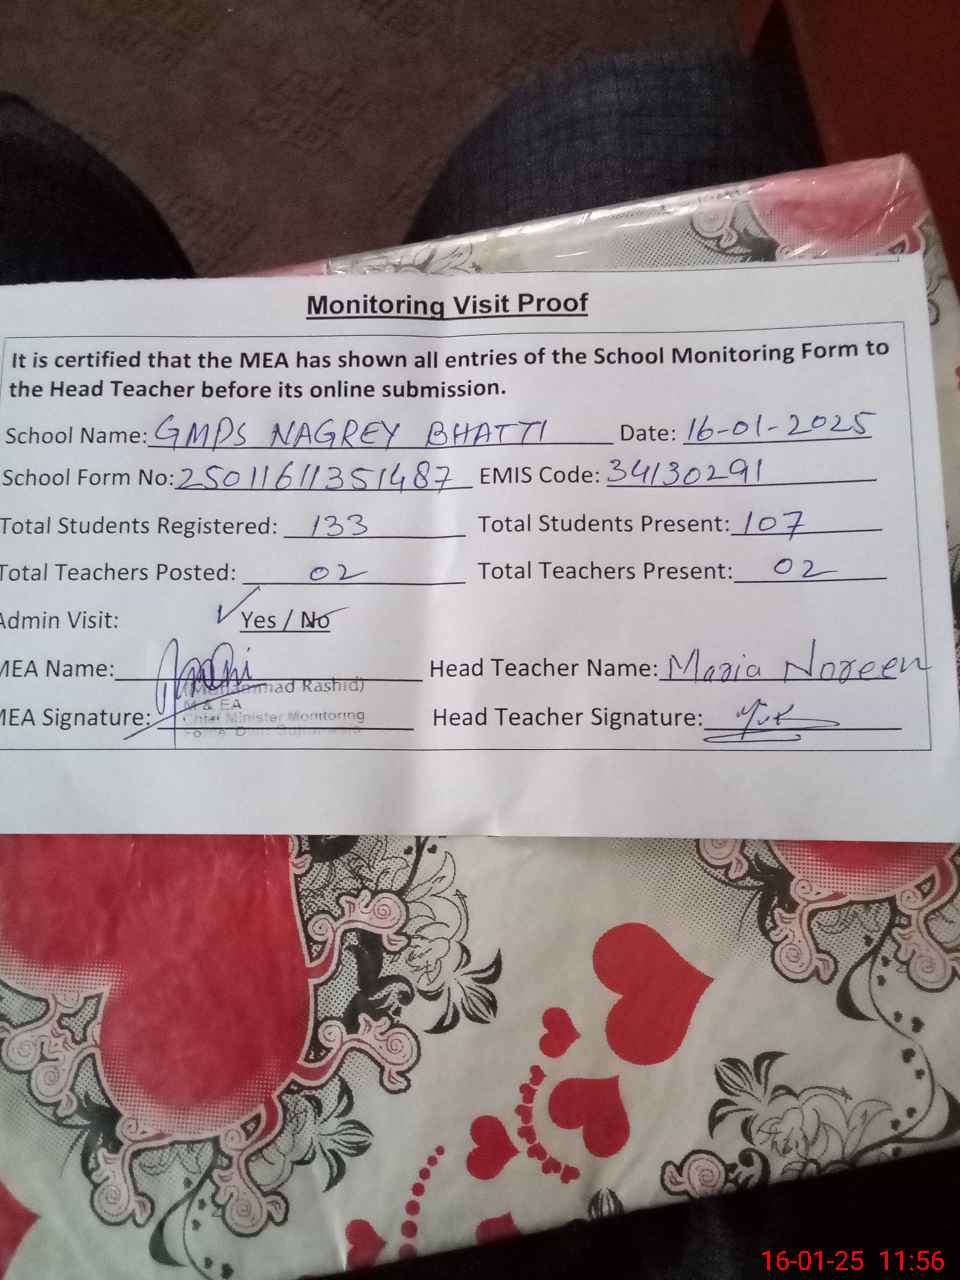 Monitoring Visit Proof
It is certified that the MEA has shown all entries of the School Monitoring Form to
the Head Teacher before its online submission.
School Name: GMPS NAGREY BHATTI Date: 16-01-2025
School Form No: 25011611351487 EMIS Code: 34130291
Total Students Registered: 133 Total Students Present: 107
Total Teachers Posted: 02 Total Teachers Present: 02
Admin Visit: Yes / No
MEA Name: Head Teacher Name: Maria Noreen
(Muhammad Rashid)
M & EA
MEA Signature: Head Teacher Signature:
Chief Minister Monitoring
16-01-25 11:56